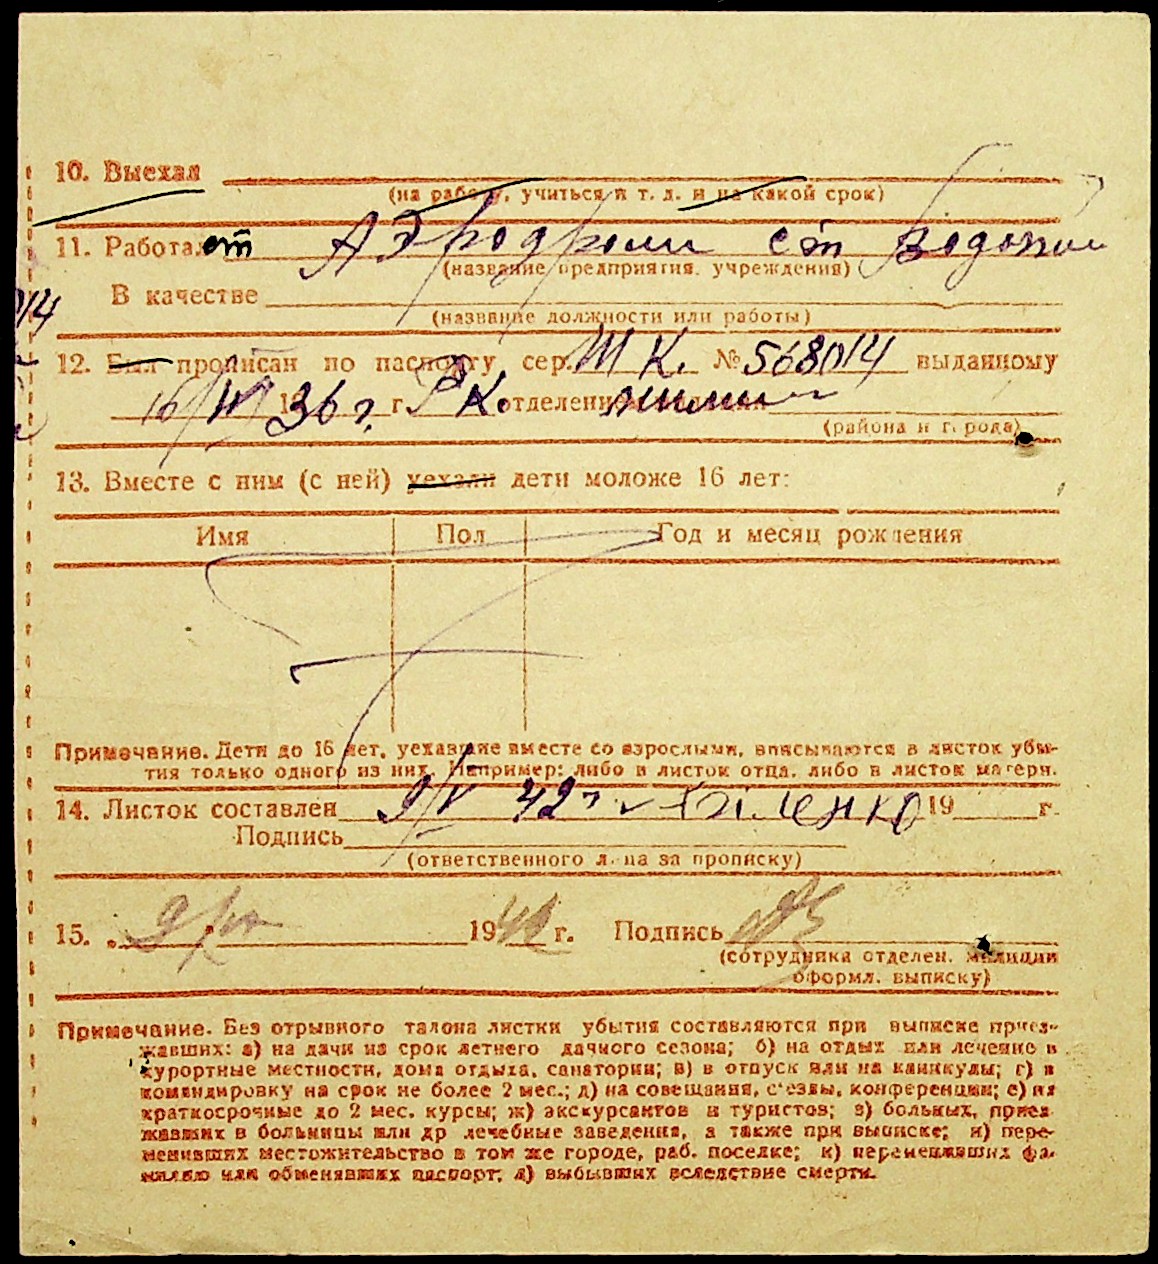 10. Выехал
(на работу, учиться и т. д. и на какой срок)
11. Работает Аэродром ст Водопой
(название предприятия, учреждения)
В качестве
014
(название должности или работы)
12. Был прописан по паспорту сер. ТК. № 568014 выданному
16/ 1936 г. РК отделением милиции
(района и города)
13. Вместе с ним (с ней) уехали дети моложе 16 лет:
Имя Пол Год и месяц рождения
Примечание. Дети до 16 лет, уехавшие вместе со взрослыми, вписываются в листок убы-
тия только одного из них. Например: либо в листок отца, либо в листок матери.
14. Листок составлен 9/V 42 г 19 г.
Подпись
(ответственного лица за прописку)
15. „ 9/ 1942 г. Подпись
(сотрудника отделен. милиции
оформл. выписку)
Примечание. Без отрывного талона листки убытия составляются при выписке приез-
жавших: а) на дачи на срок летнего дачного сезона; б) на отдых или лечение в
курортные местности, дома отдыха, санатории; в) в отпуск или на каникулы; г) в
командировку на срок не более 2 мес.; д) на совещания, с'езды, конференции; е) на
краткосрочные до 2 мес. курсы; ж) экскурсантов и туристов; з) больных, приез-
жавших в больницы или др лечебные заведения, а также при выписке; и) пере-
менивших местожительство в том же городе, раб. поселке; к) переменивших фа-
милию или обменявших паспорт; л) выбывших вследствие смерти.